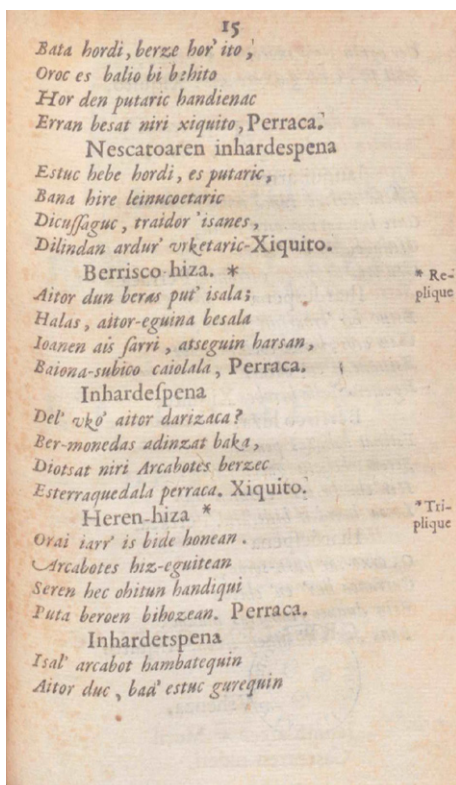 15
Bata hordi, berze hor' ito,
Oroc es balio bi behito
Hor den putaric handienac
Erran besat niri xiquito, Perraca.
Nescatoaren inhardespena
Estuc hebe hordi, es putaric,
Bana hire leinucoetaric
Dicuſſaguc, traidor 'isanes,
Dilindan ardur' vrketaric-Xiquito.
Berrisco-hiza. *
* Re-
plique
Aitor dun beras put' isala;
Halas, aitor-eguina besala
Ioanen ais ſarri, atseguin harsan,
Baiona-subico caiolala, Perraca.
Inhardeſpena
Del' vko' aitor darizaca?
Ber-monedas adinzat baka,
Diotsat niri Arcabotes berzec
Esterraquedala perraca. Xiquito.
Heren-hiza *
* Tri-
plique
Orai iarr' is bide honean.
Arcabotes hiz-eguitean
Seren hec ohitun handiqui
Puta beroen bihozean. Perraca.
Inhardetspena
Isal' arcabot hambatequin
Aitor duc, baa' estuc gurequin